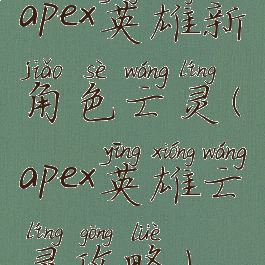 apex英雄新
jiǎo sè wáng líng
角色亡灵(
yīng xióng wáng
apex英雄亡
líng gōng lüè
灵攻略)